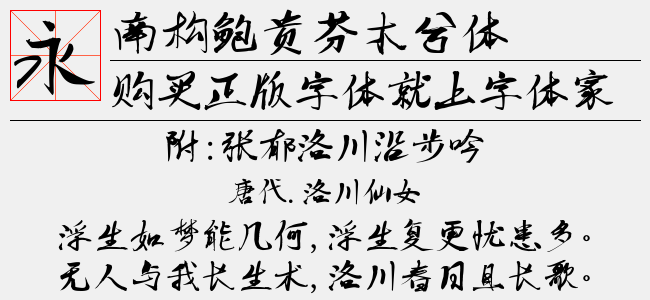 永
南构鲍贡芬木兮体
购买正版字体就上字体家
附:张郁洛川沿步吟
唐代.洛川仙女
浮生如梦能几何,浮生复更忧患多。
无人与我长生术,洛川春日且长歌。